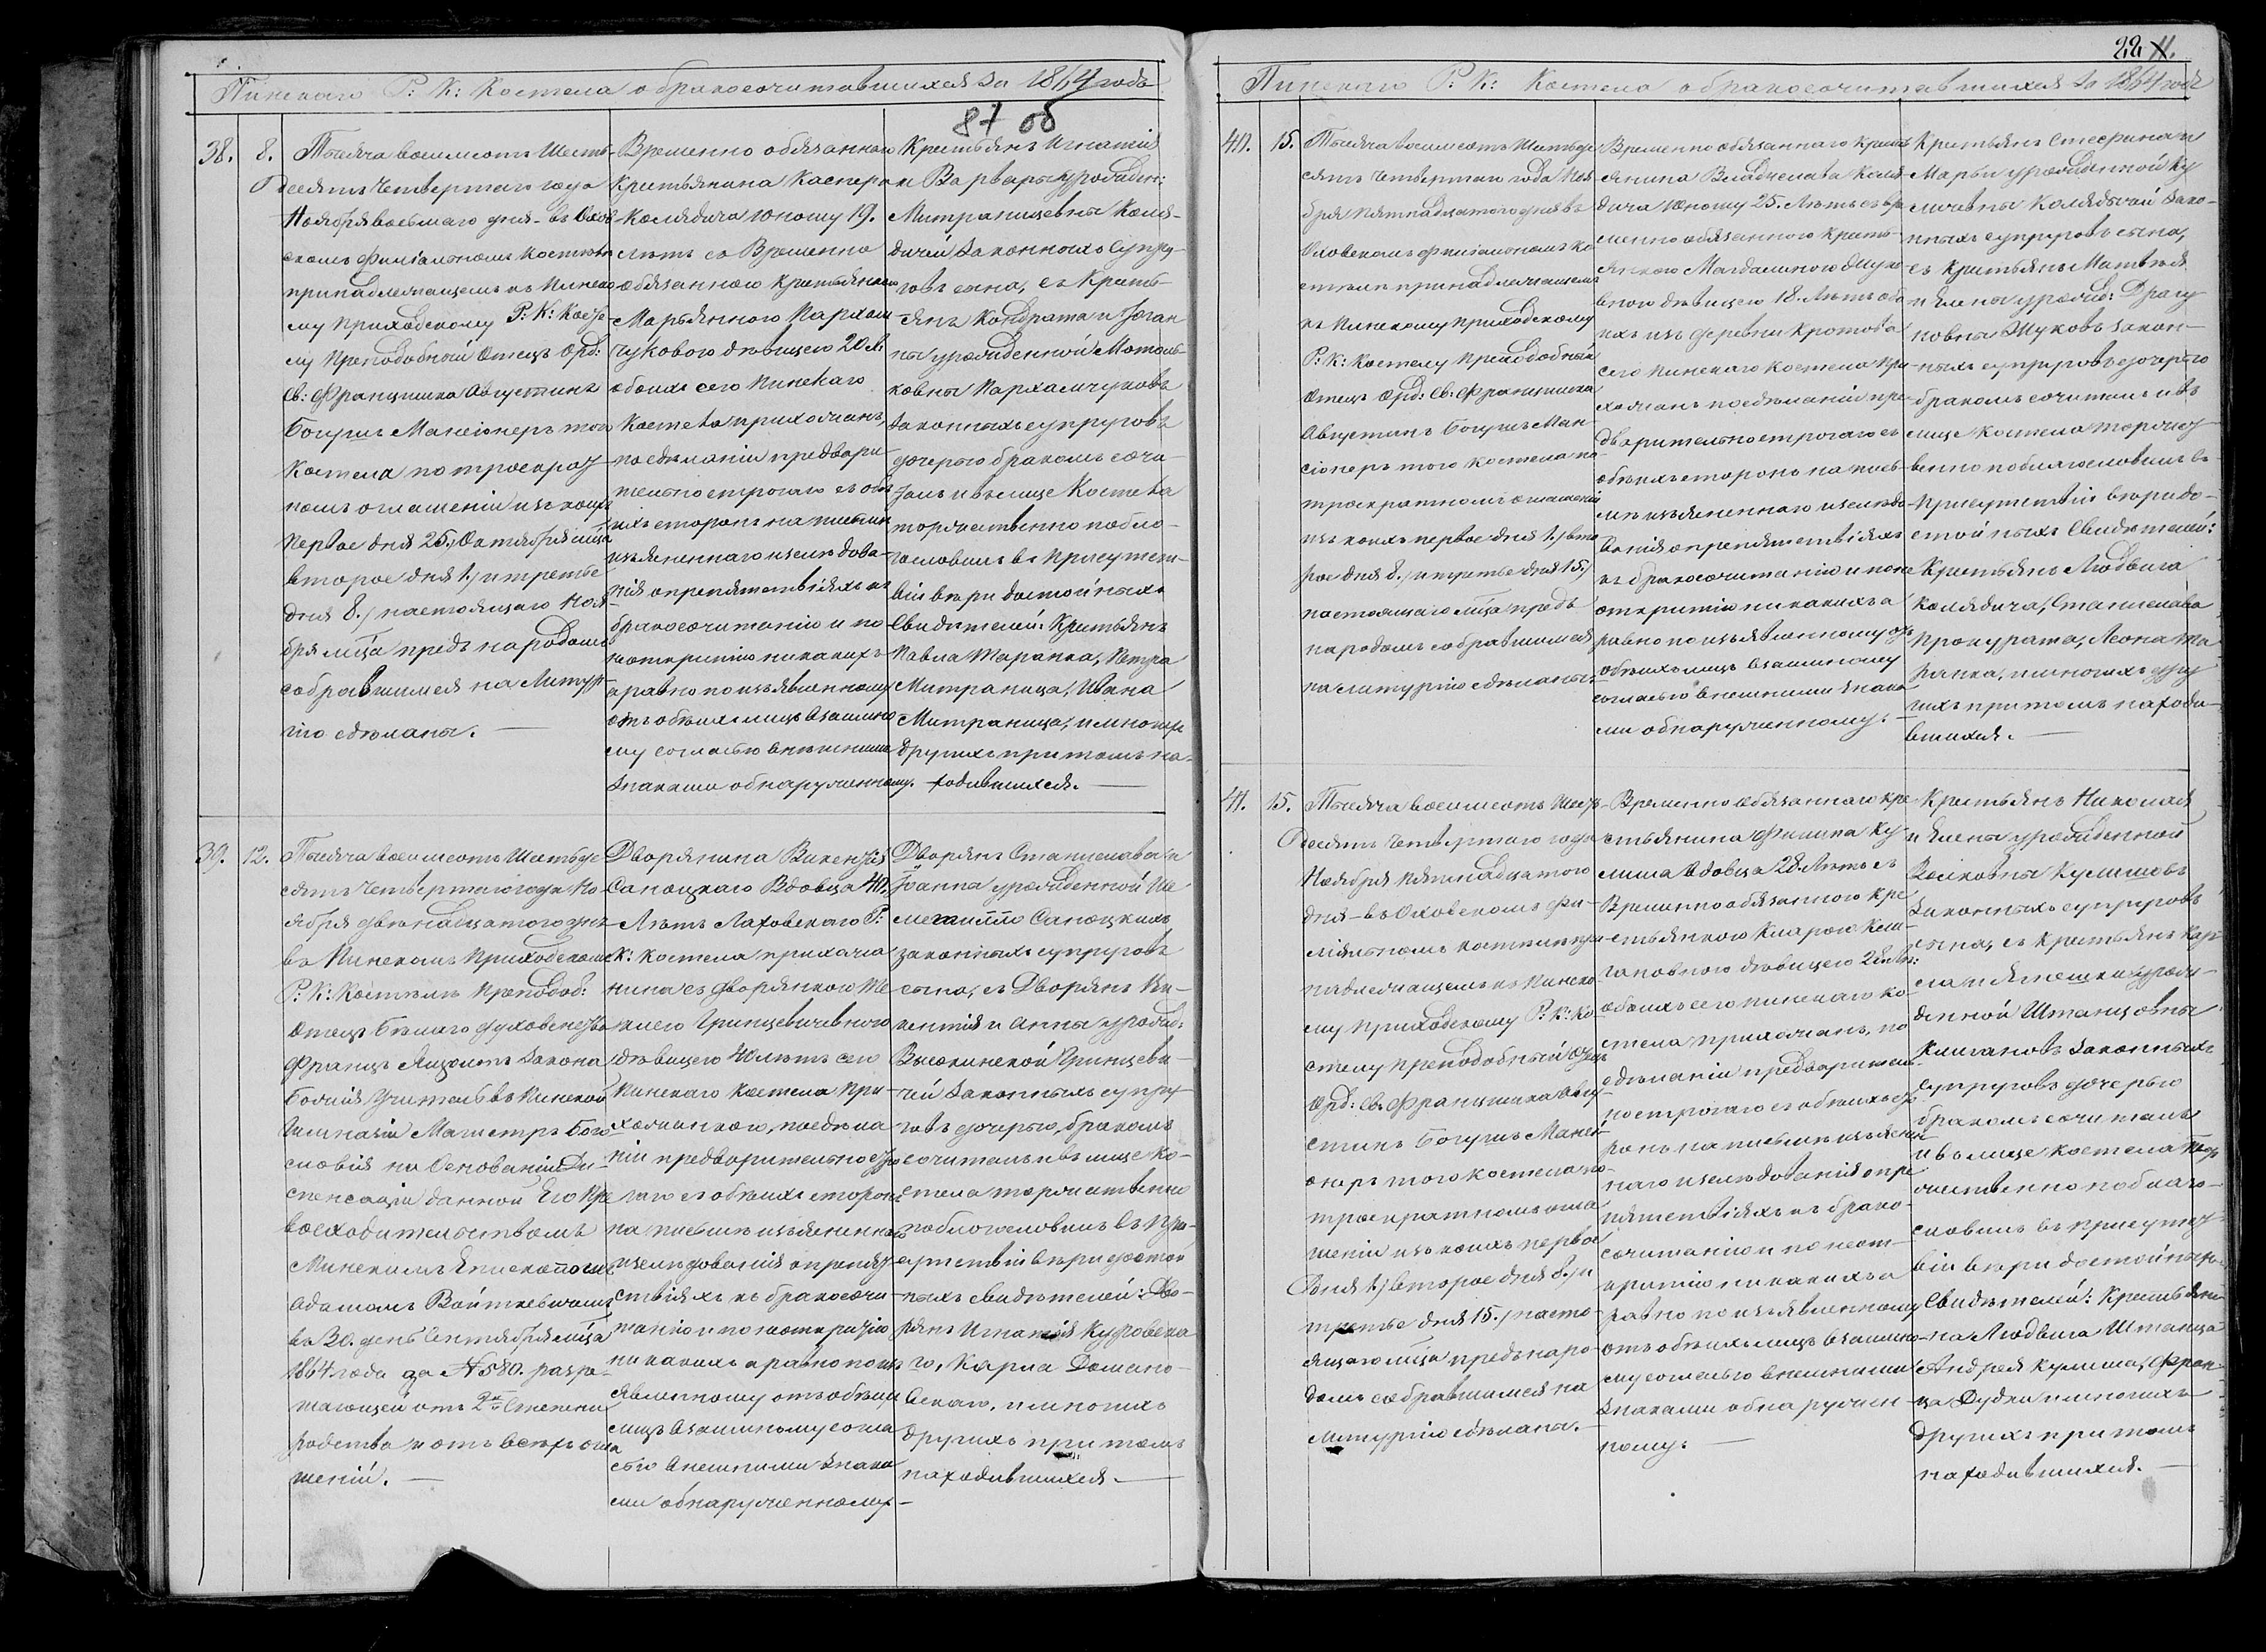 Пинскаго Р: К: Костела о бракосочитавшихся за 1864 годъ
87 об
38.
8.
Тысяча восимсотъ Шесть-
десятъ Четвертаго года
Ноября восьмаго дня - въ Охов
скомъ Филіальномъ Костелѣ
принадлежащемъ къ Пинско
му Приходскому Р: К: Косте
лу Преподобный Отецъ Орд:
Св: Франциска Августинъ
Богушъ Мансіонеръ того
Костела по троекрат
номъ оглашеніи изъ коихъ
первое дня 25./ Октября м-ца
второе дня 1./ и третье
дня 8./ настоящаго Ноя
бря м-ца предъ народомъ
собравшимся на Литур
гію сдѣланы. —
Временно обязаннаго
Крестьянина Каспера
Колядича юношу 19.
лѣтъ съ Временно
обязанною Крестьянкою
Марьянною Пархом
чуковою дѣвицею 20 л:
обоихъ сего Пинскаго
Костела прихожанъ,
по сдѣланіи предвари
тельно строгаго съ обѣ
ихъ сторонъ на письмѣ
изъясненнаго изслѣдова-
нія о препятствіяхъ къ
бракосочитанію и по
неоткрытію никакихъ
а равно по изъявленному
отъ обѣихъ лицъ взаимно
му согласью внѣшними
знаками обнаруженному.
Крестьянъ Игнатія
и Варвары урожден:
Митраницевны Коля-
дичей законныхъ супру-
говъ сына, съ Кресть-
янъ Кондрата и Іоган
ны урожденной Мотоль-
ковны Пархомчуковъ
законныхъ супруговъ
дочерью бракомъ сочи-
талъ и въ лице Костела
торжественно побла-
гословилъ въ присутст-
віи вѣри достойныхъ
Свидѣтелей: Крестьянъ
Павла Таранка, Петра
Митраница, Ивана
Митраница, и многихъ
другихъ при томъ на-
ходившихся. —
39.
12.
Тысяча восимсотъ Шестьде
сятъ Четвертаго года Но
ября двенадцатого дня
въ Пинскомъ Приходскомъ
Р: К: Костелѣ Преподоб:
Отецъ Бѣлаго духовенства
Францъ Яцолтъ Закона
Божія Учитель въ Пинской
Гимназіи Магистръ Бого
словія на Основаніи Ди-
спенсаціи данной Его Пре
восходительствомъ
Минскимъ Епископомъ
Адамомъ Войткевичемъ
въ 30. день Сентября м-ца
1864 года за № 580. разрѣ-
шающей отъ 2й Степени
родства и отъ всѣхъ огла
шеній. —
Дворянина Викентія
Саноцкаго Вдовца 40.
Лѣтъ Лаховскаго Р:
К: Костела прихожа
нина съ дворянкою Те
клею Гринцевичевною
дѣвицею лѣтъ сего
Пинскаго Костела при
хожанкою, по сдѣла
ніи предворительно стро
гаго съ обѣихъ сторонъ
на письмѣ изъясненнаго
изслѣдованія о препят
ствіяхъ къ бракосочи
танію и по неоткрытію
никакихъ а равно по изъ
явленному отъ обѣихъ
лицъ взаимному согла
сью внешними знака
ми обнаруженному. -
Дворянъ Станислава и
Іоанны урожденной
Саноцкихъ
законныхъ супруговъ
сына, съ Дворянъ Ви-
кентія и Анны урожд:
Высокинской Гринцеви-
чей законныхъ супру
говъ дочерью, бракомъ
сочиталъ и въ лице Ко-
стела торжественно
поблогословилъ въ при-
сутствіи вѣри достой
ныхъ свидѣтелей: Дво-
рянъ Игнатія Куровска
го, Карла Домано-
вскаго, и многихъ
другихъ при томъ
находившихся. —
22 11.
Пинскаго Р: К: Костела о бракосочитавшихся за 1864 годъ
40.
15.
Тысяча восимсотъ Шестьде
сятъ Четвертаго года Ноя
бря пятнадцатого дня въ
Оховскомъ Филіальномъ Ко
стелѣ принадлежащемъ
къ Пинскому Приходскому
Р: К: Костелу Преподобный
Отецъ Орд: Св: Франциска
Августинъ Богушъ Ман-
сіонеръ того Костела по
троекратномъ оглашеніи
изъ коихъ первое дня 1./ вто
рое дня 8./ и третье дня 15./
настоящаго м-ца предъ
народомъ собравшимся
на Литургію сдѣланы. -
Временно обязаннаго Крест
янина Владислава Коля
дича Юношу 25. Лѣтъ съ вре
менно обязанною Кресть
янкою Магдаленою Жуко
вною дѣвицею 18. Лѣтъ обо
ихъ изъ деревни Кротова
сего Пинскаго Костела при
хожанъ по сдѣланіи пре-
дворительно строгаго съ
обѣихъ сторонъ на пись-
мѣ изъясненнаго изслѣдо
ванія о препятствіяхъ
къ бракосочитанію и по не
открытіи никакихъ а
равно по изъявленному отъ
обѣихъ лицъ взаимному
согласью внешними знака
ми обнаруженному. -
Крестьянъ Стефана и
Марьи урожденной Ку
личовны Колядычей зако-
нныхъ супруговъ сына,
съ Крестьянъ Матвѣя
и Елены урожд: Драгу
новны Жуковъ закон-
ныхъ супруговъ дочерью
бракомъ сочиталъ и въ
лице Костела торжест
венно поблагословилъ въ
присутствіи вѣридо-
стойныхъ Свидѣтелей:
Крестьянъ Людвига
Колядича, Станислава
Прокурата, Леона Та
ранка, и многихъ дру
гихъ при томъ находи-
вшихся. —
41.
15.
Тысяча восимсотъ Шесть
десятъ Четвертаго года
Ноября пятнадцатого
дня - въ Оховскомъ Фи-
ліяльномъ Костелѣ при
надлежащемъ къ Пинско-
му Приходскому Р: К: Ко-
стелу Преподобный Отецъ
Орд: Св: Франциска Авгу
стинъ Богушъ Мансі
онеръ того Костела по
троекратномъ огла
шеніи изъ коихъ первое
дня 1./ второе дня 8./ и
третье дня 15./ насто-
ящаго м-ца предъ наро-
домъ собравшимся на
Литургію сдѣланы. -
Временно обязаннаго Кре
стьянина Филипа Ку-
лиша Вдовца 28. Лѣтъ съ
Временно обязанною Кре
стьянкою Кларою Кли-
гановною дѣвицею 28 Лѣт:
обоихъ сего Пинскаго Ко-
стела прихожанъ, по
сдѣланіи предворитель-
но строгаго съ обѣихъ сто
ронъ на письмѣ изъяснен
наго изслѣдованія о пре
пятствіяхъ къ брако-
сочитанію и по неот-
крытію никакихъ а
равно по изъявленному
отъ обѣихъ лицъ взаимно
му согласью внешними
знаками обнаружен-
ному. —
Крестьянъ Николая
и Елены урожденной
Кулишовъ
законныхъ супруговъ
сына, съ Крестьянъ Кар
ла и урожде-
нной Штанцовны
Клигановъ законныхъ
супруговъ дочерью
бракомъ сочиталъ
и въ лице Костела тор
жественно поблаго-
словилъ въ присутст
віи вѣри достойныхъ
Свидѣтелей: Крестьяни
на Людвига Штанца
Андрея Кулиша, Фран
ца Дудки и многихъ
другихъ при томъ
находившихся. —